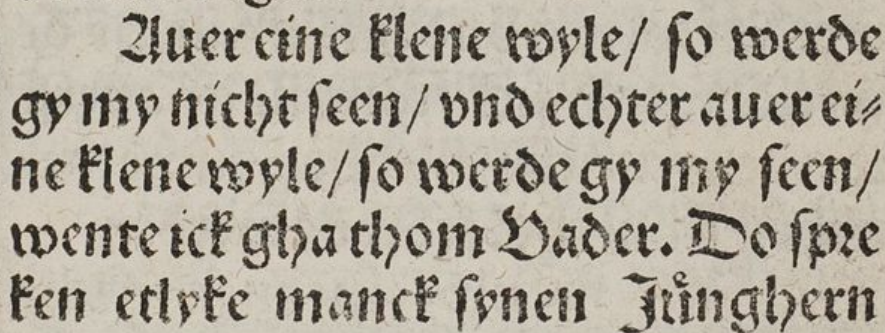 Auer eine klene wyle/ so werde
gy my nicht seen/ vnd echter auer ei⸗
ne klene wyle/ so werde gy my seen/
wente ick gha thom Vader. Do spre
ken etlyke manck synen Jůnghern